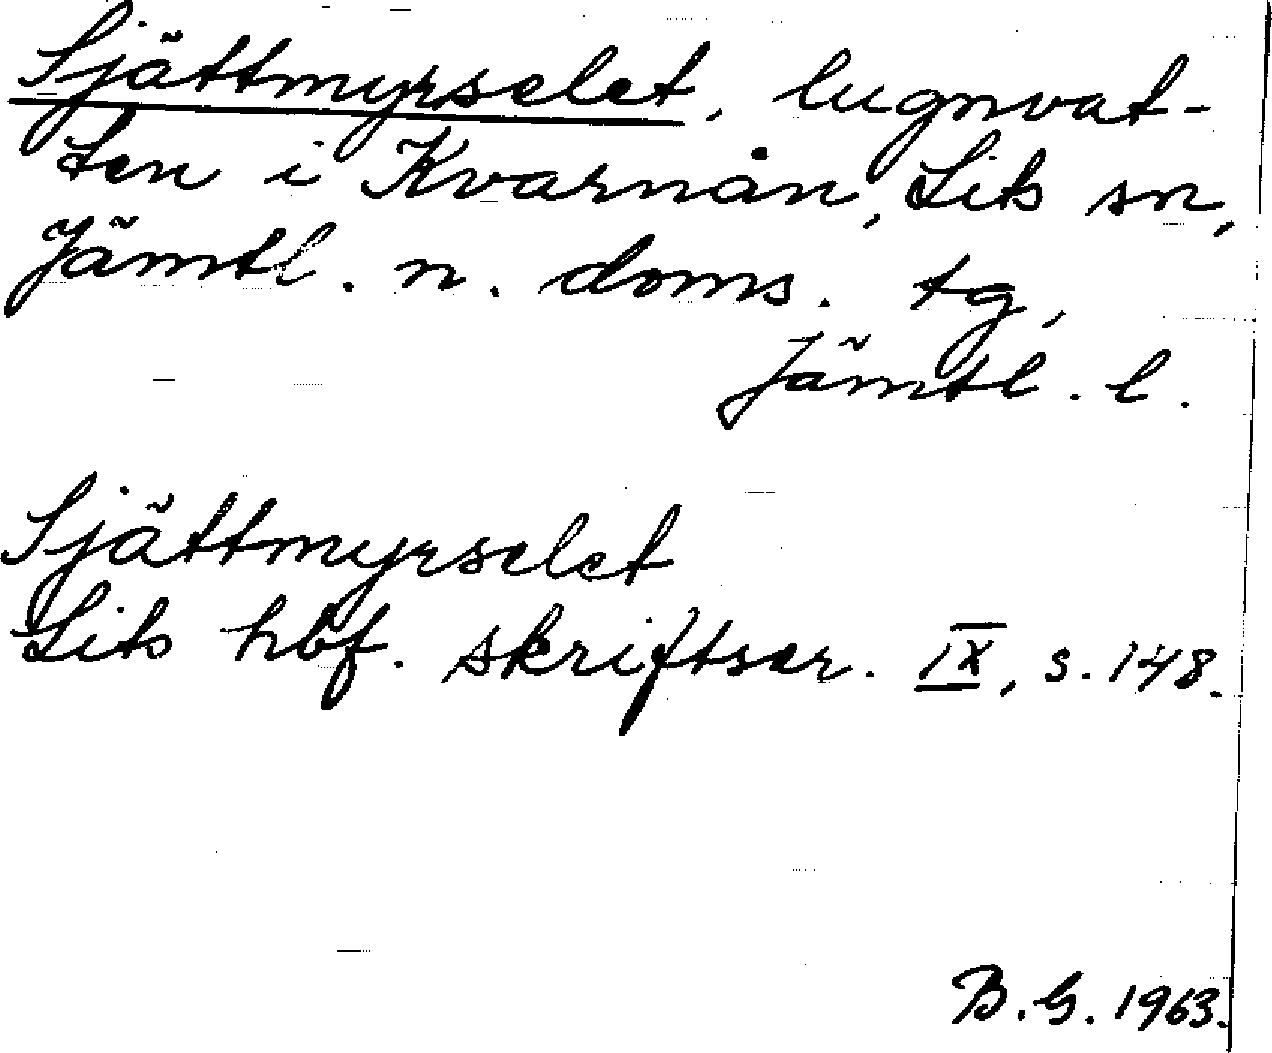 Sjättmyrselet, lugnvat-
ten i Kvarnån, Lits sn,
Jämtl. n. doms. tg,
Jämtl. l.
Sjättmyrselet
Lits hbf. skriftser. IX, s. 148.
B. G. 1963.